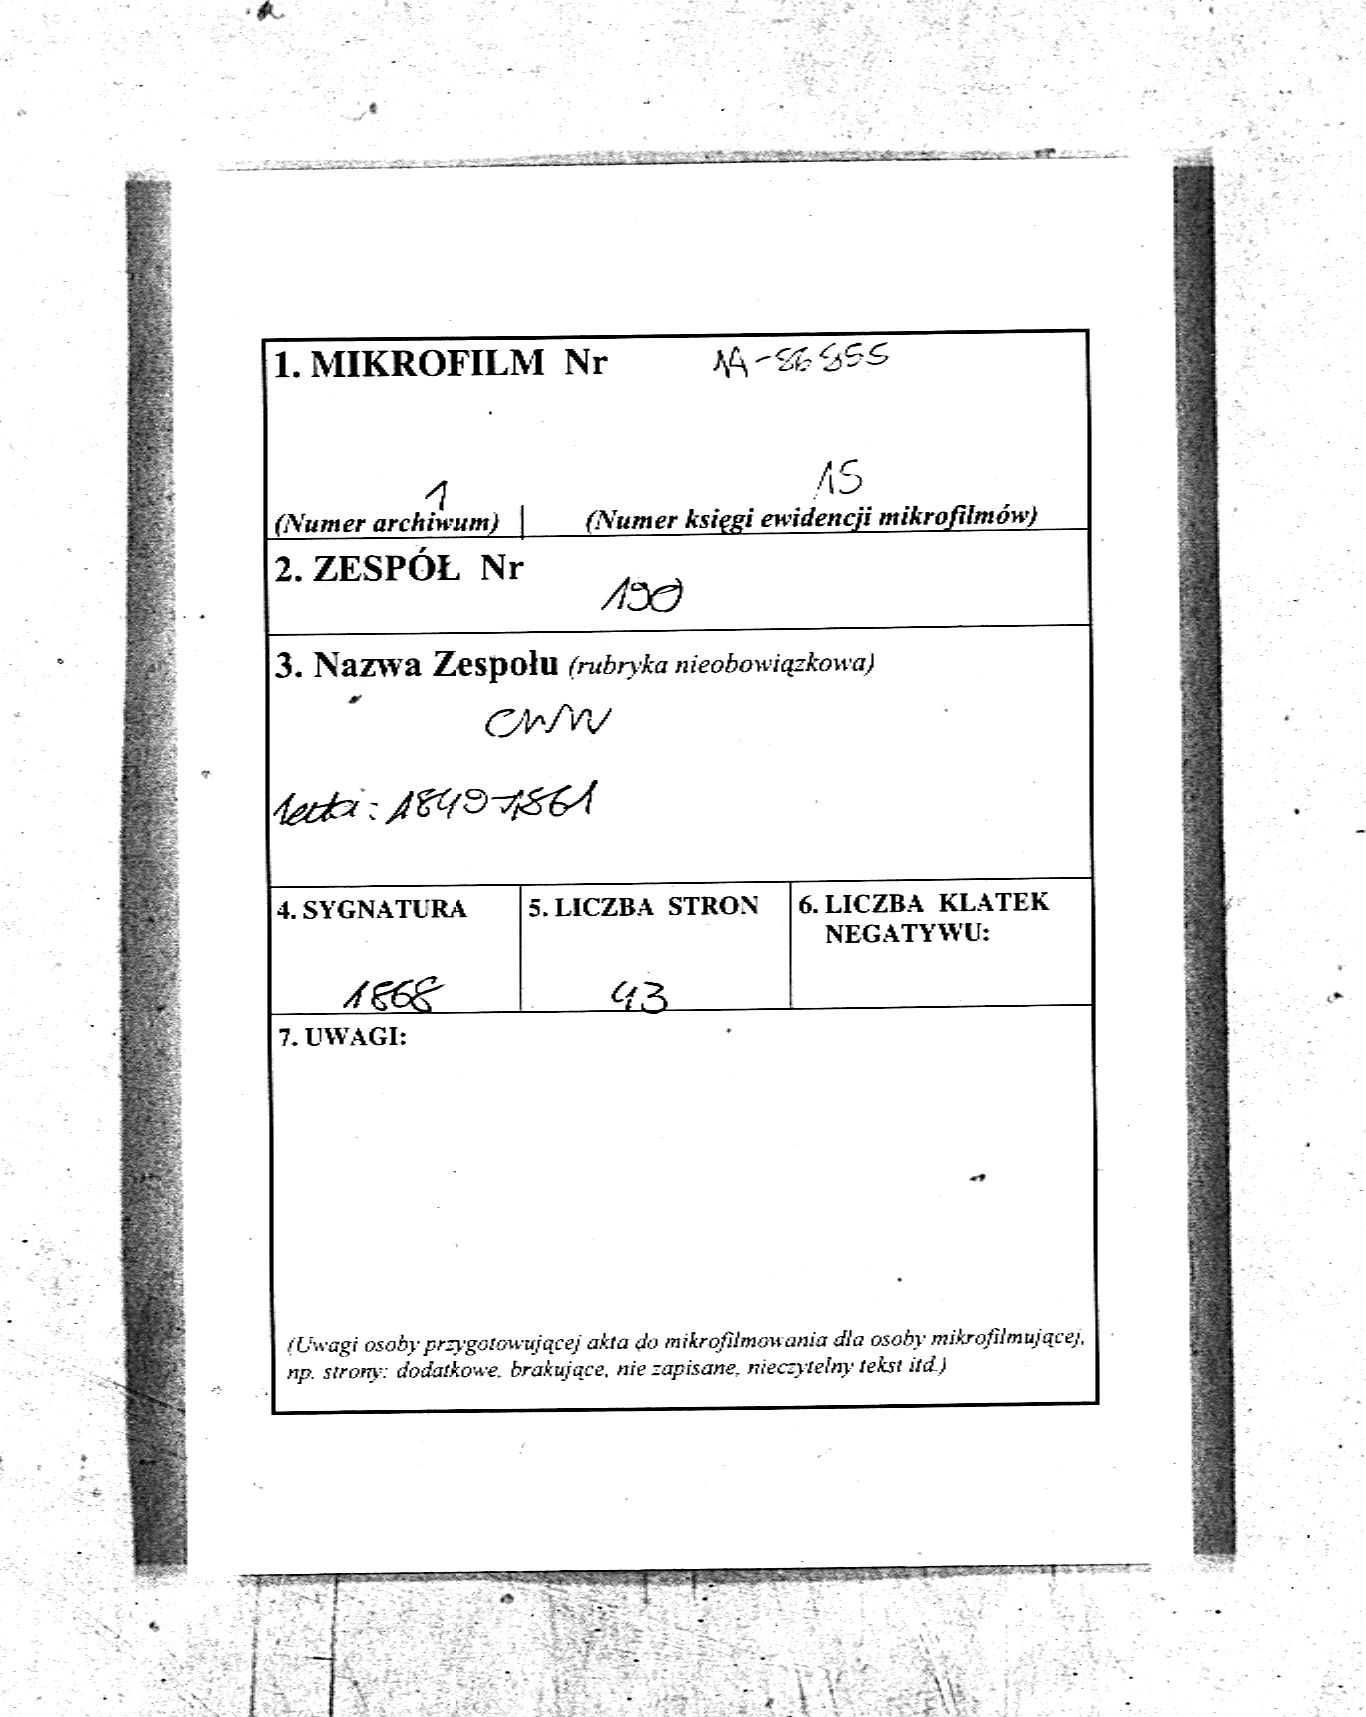 1. MIKROFILM Nr
1
15
(Numer archiwum) (Numer księgi ewidencji mikrofilmów)
2. ZESPÓŁ Nr
190
3. Nazwa Zespołu (rubryka nieobowiązkowa)
CWW
1849-1861
4. SYGNATURA 5. LICZBA STRON 6. LICZBA KLATEK
NEGATYWU:
1868 43
7. UWAGI:
(Uwagi osoby przygotowującej akta do mikrofilmowania dla osoby mikrofilmującej,
np. strony: dodatkowe, brakujące, nie zapisane, nieczytelny tekst itd.)